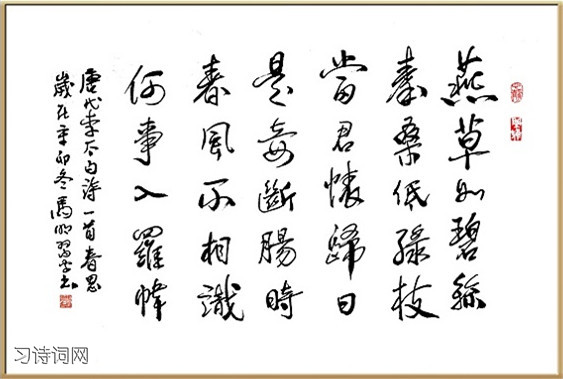 燕草如碧絲
秦桑低綠枝
當君懷歸日
是妾斷腸時
春風不相識
何事入羅幃
唐代李太白詩一首春思
歲在辛卯冬馬
习诗词网